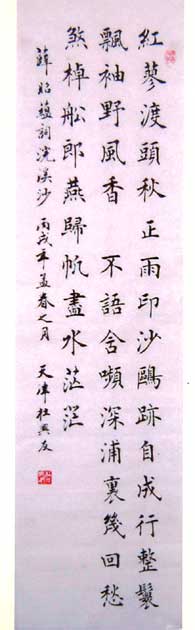 紅蓼渡頭秋正雨印沙鷗跡自成行整鬟
飄袖野風香 不語含嚬深浦裏幾回愁
煞棹船郎燕歸帆盡水茫茫
薛昭蘊詞浣溪沙 丙戌年孟春之月 天津杜興友